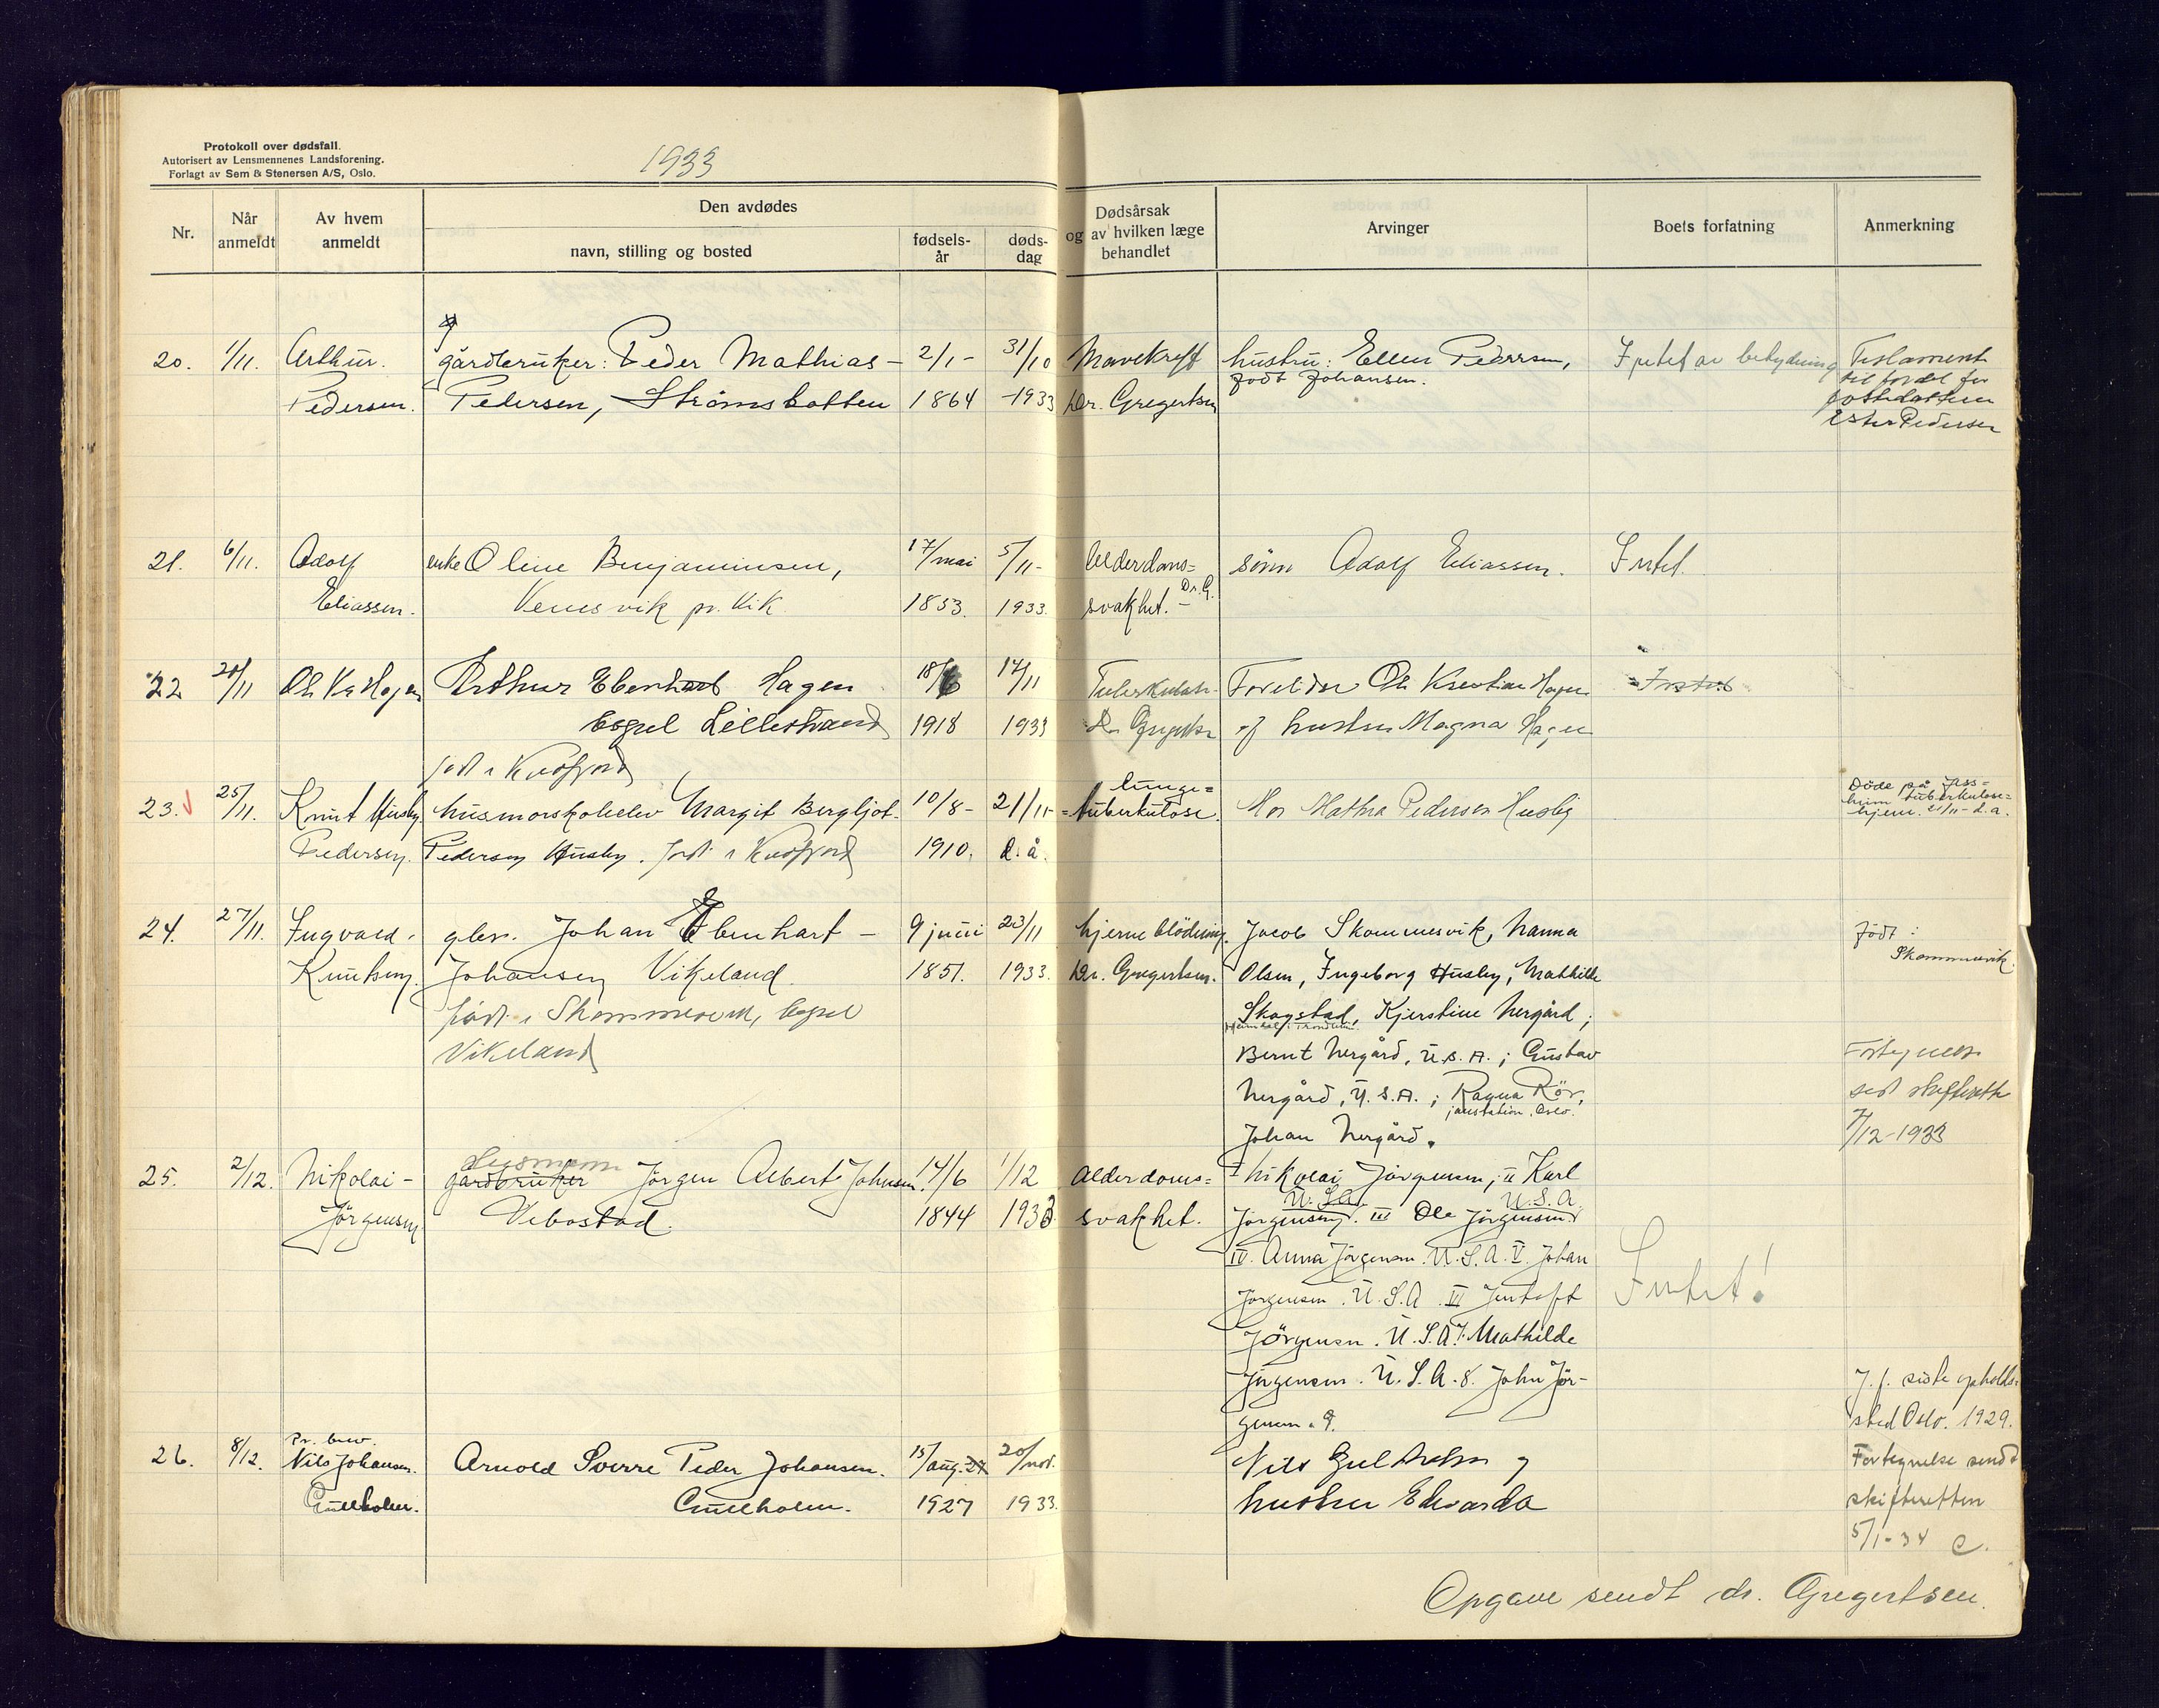 Protokoll over dødsfall.
Autorisert av Lensmennenes Landsforening.
Forlagt av Sem & Stenersen A/S, Oslo.
1933
Nr.
Når anmeldt
Av hvem anmeldt
Den avdødes
navn, stilling og bosted
fødsels-år
døds-dag
Dødsårsak og av hvilken læge behandlet
Arvinger
Boets forfatning
Anmerkning
20. 1/11. Arthur. gårdbruker: Peder Mathias - 2/1 - 31/10 Mavekreft hustru: Ellen Pedersen, Intet av betydning Testament
født Johansen. til fordel for
Pedersen. Pedersen, Strømsbotten 1864 -1933 Dr. Gregertsen postedatteren
Ester Pedersen
21. 6/11. Adolf enke Oline Benjaminsen, 17/mai 5/11- Alderdoms= sønn Adolf Eliassen. Intet.
Eliassen. Venesvik pr. Vik. 1853. 1933. svakhet. - Dr. G.
22 20/11 Ole Kr Hagen Arthur Ebenhart Hagen 18/6 14/11 Tuberkulose Foreldre Ole Kristian Hagen Intet
Espel Lillestrand 1918 1933 Dr Gregertsen og hustru Magna Hagen
født i Kvæfjord
23. 25/11. Knut Husby husmorskoleelev Margit Bergljot 10/8- 21/11- lunge= tuberkulose. Mor Mathea Pedersen Husby Døde på
tuberkulose=
hjem. 21/11- d.a.
Pedersen. Pedersen Husby. født i Kvæfjord 1910. d. å.
24. 27/11. Ingvald gbr. Johan Ebenhart - 9 juni 23/11 hjerneblödning. Jacob Skommesvik, Hanna Født i
Knutsen. Johansen Vikeland. 1851. 1933. Dr. Gregertsen. Olsen, Ingeborg Husby, Mathilde Skommesvik.
født i Skommesvik, Espel Skogstad, Kjerstine Nergård;
Vikeland Bernt Nergård, U.S.A.; Gustav Fortegnelse
Nergård, U.S.A.; Ragna Rör, send skifterette
Oslo.
Johan Nergård. 7/12-1933
25. 2/12. Nikolai - Legsmann
gårdbruker Jörgen Albert Johnsen. 14/6 1/12 Alderdoms= I Nikolai Jörgensen; II Karl
Jörgensen Vebostad. 1844 1933 svakhet. Jörgensen U.S.A. III Ole Jörgensen U.S.A.
IV. Anna Jörgensen. U.S.A. V. Johan
Jörgensen. U.S.A. VI Jentoft Intet!
Jörgensen. U.S.A. 7. Mathilde
Jörgensen. U.S.A. 8. John Jör-
gensen. 9. J.f. siste opholds-
sted Oslo. 1929.
26. 8/12. Pr. brev.
Nils Johansen. Arnold Sverre Peder Johansen. 15/aug. 27 20/nov. Nils Gulholm og Fortegnelse sendt
Gullholm. Gullholm. 1927 1933. hustru Edvarda skifteretten
5/1-34 C.
Opgave sendt dr. Gregertsen.